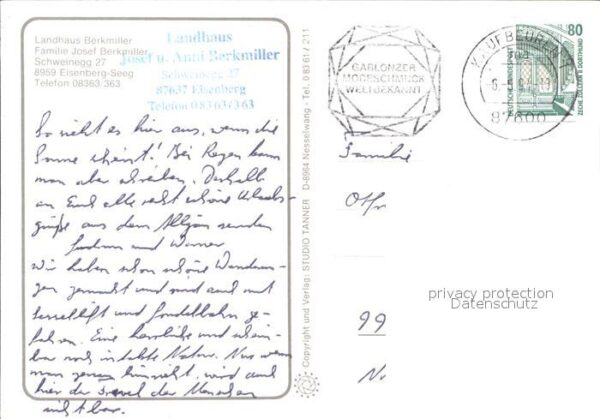 Landhaus Berkmiller
Familie Josef Berkmiller
Schweinegg 27
8959 Eisenberg-Seeg
Telefon 08363/363
Landhaus
Josef u. Anni Berkmiller
Schweinegg 27
87637 Eisenberg
Telefon 08363/363
So sieht es hier aus, wenn die
Sonne scheint! Bei Regen kann
man aber schreiben. Deshalb
an Euch alle recht schöne Urlaubs-
grüße aus dem Allgäu senden
und Werner
Wir haben schon schöne Wanderun-
gen gemacht und sind auch mit
Sessellift und Gondelbahn ge-
fahren. Eine herrliche und schein-
bar noch intakte Natur. Nur wenn
man genau hinsieht, wird auch
hier der Frevel der Menschen
sichtbar.
Copyright und Verlag: STUDIO TANNER D-8964 Nesselwang - Tel. 0 83 61 / 211
GABLONZER
MODESCHMUCK
WELTBEKANNT
KAUFBEUREN
87600
80
DEUTSCHE BUNDESPOST
ZECHE ZOLLERN II DORTMUND
Familie
99
Nr
privacy protection
Datenschutz